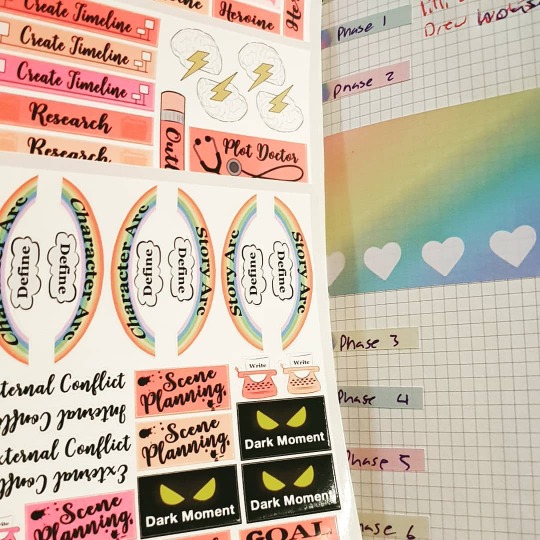 Create Timeline
Heroine
Create Timeline
Create Timeline
Research
Research
Plot Doctor
Character Arc
Define
Define
Character Arc
Story Arc
Define
Define
Story Arc
Story Arc
Define
Define
Internal Conflict
External Conflict
External Conflict
Scene
Planning
Write
Write
Scene
Planning
Dark Moment
Dark Moment
Dark Moment
Write
Scene
Planning
GOAL
Phase 1
Phase 2
Phase 3
Phase 4
Phase 5
Phase 6